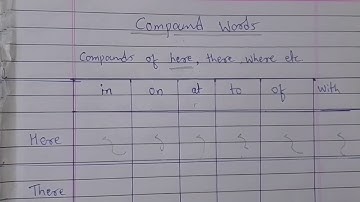 Compound Words
Compounds of here, there, where etc
in on at to of with
Here
There